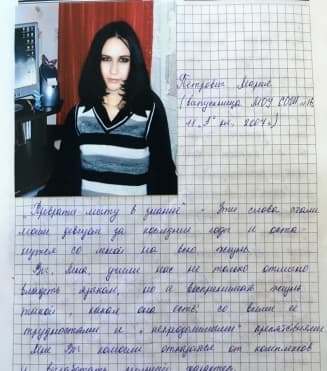 Петрович Мария
(выпускница МОУ СОШ №16,
11 "А" кл. 2007г.)
"Преврати мечту в знание" - Эти слова стали
моим девизом за последние годы и оста-
нутся со мной на всю жизнь.
Вы, учили нас не только отлично
владеть языком, но и воспринимать жизнь
такой, какая она есть, со всеми её
трудностями и "непреодолимыми" препятствиями.
Мне Вы помогли отказаться от комплексов
и выработать характер